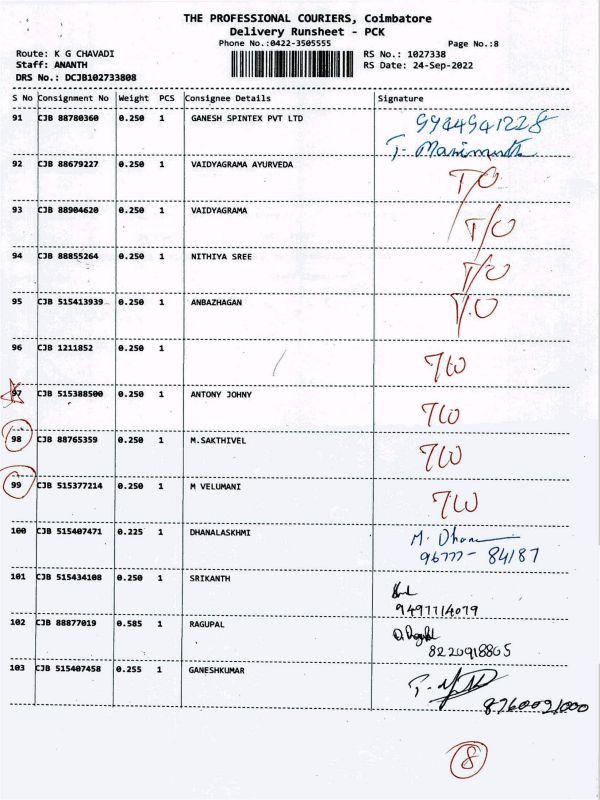 THE PROFESSIONAL COURIERS, Coimbatore
Delivery Runsheet - PCK
Phone No.:0422-3505555
Page No.:8
Route: K G CHAVADI
RS No.: 1027338
Staff: ANANTH
RS Date: 24-Sep-2022
DRS No.: DCJB102733808
S No Consignment No Weight PCS Consignee Details Signature
91 CJB 88780360 0.250 1 GANESH SPINTEX PVT LTD 9944941228
T. Marimuth
92 CJB 88679227 0.250 1 VAIDYAGRAMA AYURVEDA T/O
93 CJB 88904620 0.250 1 VAIDYAGRAMA T/O
94 CJB 88855264 0.250 1 NITHIYA SREE T/O
95 CJB 515413939 0.250 1 ANBAZHAGAN T.O
96 CJB 1211852 0.250 1
97 CJB 515388500 0.250 1 ANTONY JOHNY
98 CJB 88765359 0.250 1 M.SAKTHIVEL
99 CJB 515377214 0.250 1 M VELUMANI
100 CJB 515407471 0.225 1 DHANALASKHMI M. Dhana
96777- 84187
101 CJB 515434108 0.250 1 SRIKANTH
9497714079
102 CJB 88877019 0.585 1 RAGUPAL
8220918805
103 CJB 515407458 0.255 1 GANESHKUMAR
8760091000
8